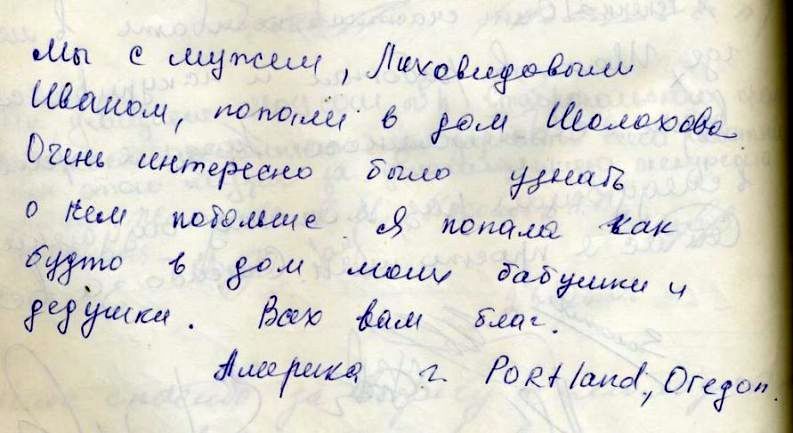 Мы с мужем, Лиховидовым
Иваном, попали в дом Шолохова
Очень интересно было узнать
о нем побольше. Я попала как
будто в дом моих бабушки и
дедушки. Всех вам благ.
Америка г. Portland, Oregon.